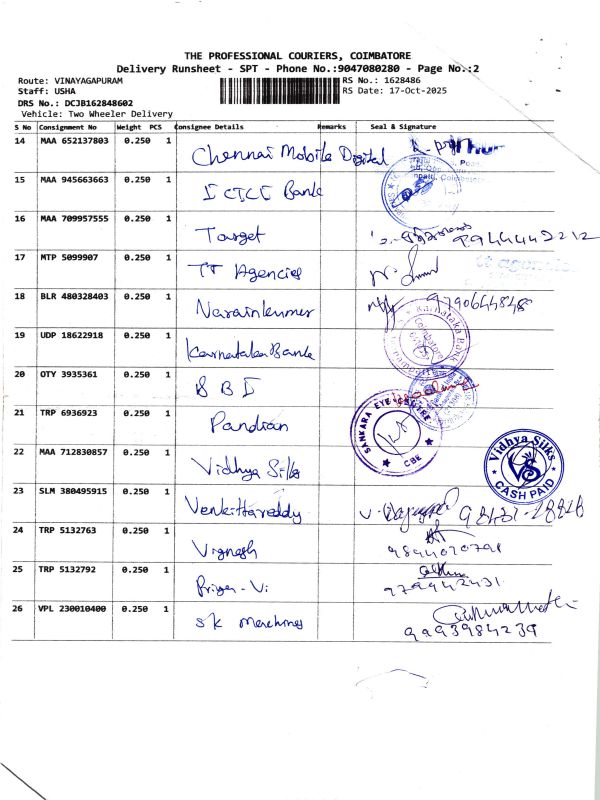 THE PROFESSIONAL COURIERS, COIMBATORE
Delivery Runsheet - SPT - Phone No.:9047080280 - Page No.:2
Route: VINAYAGAPURAM
RS No.: 1628486
Staff: USHA
RS Date: 17-Oct-2025
DRS No.: DCJB162848602
Vehicle: Two Wheeler Delivery
S No Consignment No Weight PCS Consignee Details Remarks Seal & Signature
14 MAA 652137803 0.250 1 Chennai Mobile Digital
15 MAA 945663663 0.250 1 ICICI Bank
16 MAA 709957555 0.250 1 Target 9944442212
17 MTP 5099907 0.250 1 TT Agencies
18 BLR 480328403 0.250 1 Narainkumer 9790644848
19 UDP 18622918 0.250 1 Karnataka Bank Karnataka Bank Coimbatore
20 OTY 3935361 0.250 1 SBI
21 TRP 6936923 0.250 1 Pandian SANKARA EYE CENTRE CBE
22 MAA 712830857 0.250 1 Vidhya Silks Vidhya Silks VS CASH PAID
23 SLM 380495915 0.250 1 Venkittareddy
24 TRP 5132763 0.250 1 Vignesh 9894020791
25 TRP 5132792 0.250 1 Priya-Vi 979942431
26 VPL 230010400 0.250 1 SK Machines 9993984239